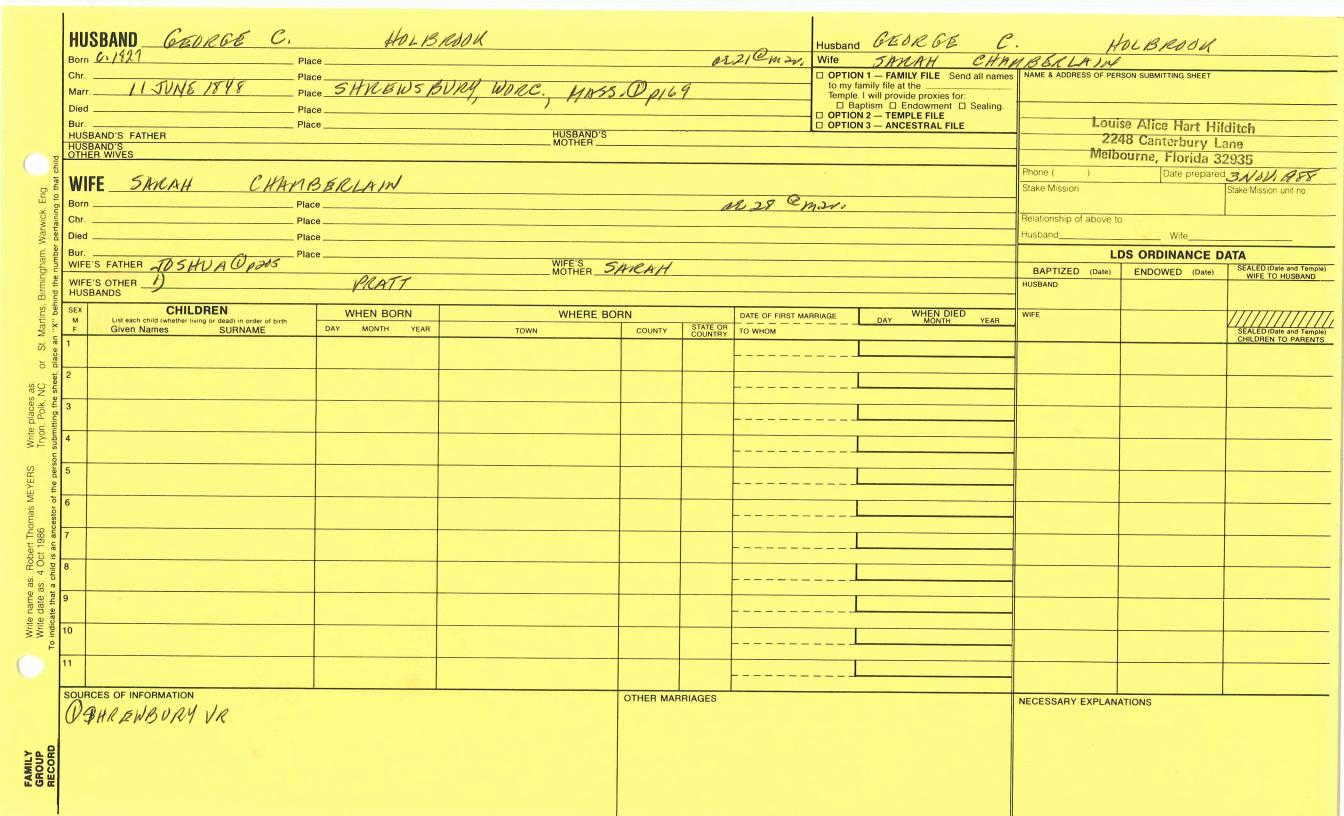 HUSBAND GEORGE C. HOLBROOK
Born c. 1827 Place ae 21 @ mar.
Chr. Place
Marr. 11 JUNE 1848 Place SHREWSBURY, WORC., MASS. ① p169
Died Place
Bur. Place
HUSBAND'S FATHER HUSBAND'S MOTHER
HUSBAND'S OTHER WIVES
WIFE SARAH CHAMBERLAIN
Born Place ae 28 @ mar.
Chr. Place
Died Place
Bur. Place
WIFE'S FATHER JOSHUA ① p205 WIFE'S MOTHER SARAH
WIFE'S OTHER HUSBANDS 1) PRATT
Husband GEORGE C. HOLBROOK
Wife SARAH CHAMBERLAIN
☐ OPTION 1 — FAMILY FILE Send all names
to my family file at the
Temple. I will provide proxies for:
☐ Baptism ☐ Endowment ☐ Sealing.
☐ OPTION 2 — TEMPLE FILE
☐ OPTION 3 — ANCESTRAL FILE
NAME & ADDRESS OF PERSON SUBMITTING SHEET
Louise Alice Hart Hilditch
2248 Canterbury Lane
Melbourne, Florida 32935
Phone ( ) Date prepared 3 NOV. 1988
Stake Mission Stake Mission unit no.
Relationship of above to
Husband Wife
LDS ORDINANCE DATA
BAPTIZED (Date) ENDOWED (Date) SEALED (Date and Temple) WIFE TO HUSBAND
HUSBAND
WIFE
SEALED (Date and Temple) CHILDREN TO PARENTS
SEX M F
CHILDREN
List each child (whether living or dead) in order of birth
Given Names SURNAME
WHEN BORN
DAY MONTH YEAR
WHERE BORN
TOWN COUNTY STATE OR COUNTRY
DATE OF FIRST MARRIAGE
TO WHOM
WHEN DIED
DAY MONTH YEAR
1
2
3
4
5
6
7
8
9
10
11
SOURCES OF INFORMATION
① SHREWBURY VR
OTHER MARRIAGES
NECESSARY EXPLANATIONS
Write name as: Robert Thomas MEYERS Write places as: Tryon, Polk, NC or St. Martins, Birmingham, Warwick, Eng.
Write date as: 4 Oct 1986
To indicate that a child is an ancestor of the person submitting the sheet, place an "X" behind the number pertaining to that child
FAMILY
GROUP
RECORD